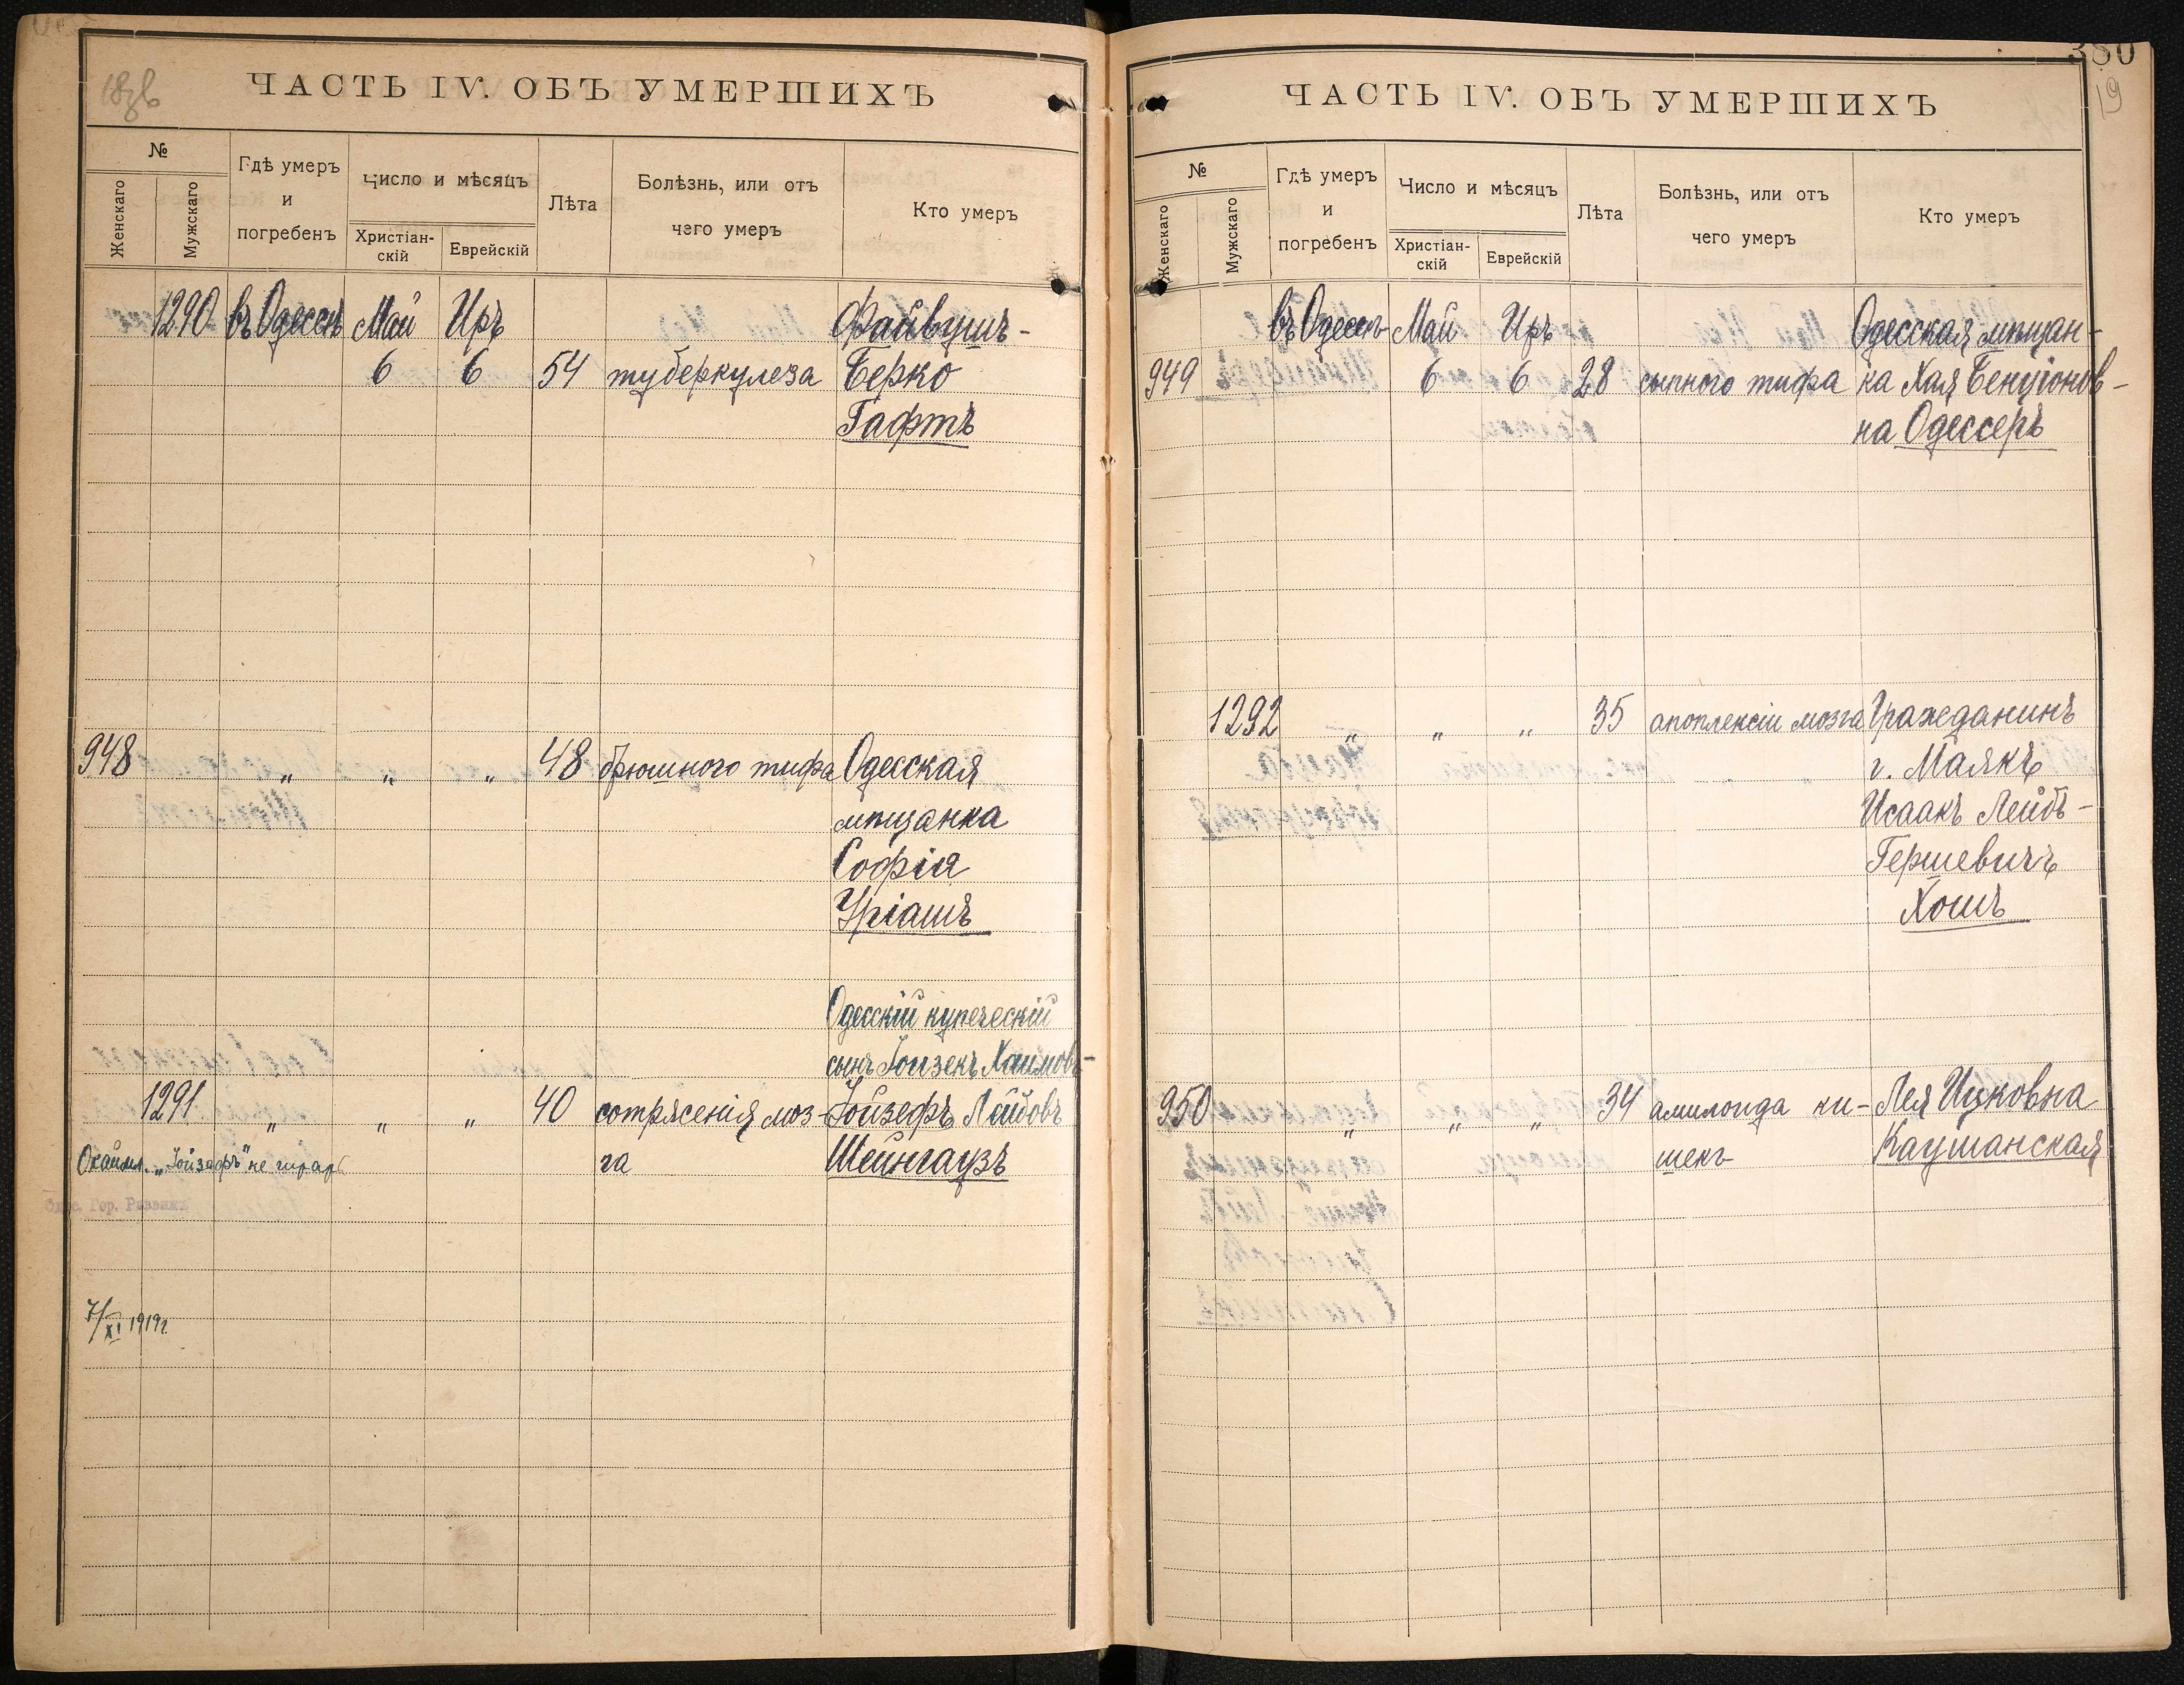 ЧАСТЬ IV. ОБЪ УМЕРШИХЪ
№
Женскаго
Мужскаго
Гдѣ умеръ
и
погребенъ
Число и мѣсяцъ
Христіан-
скій
Еврейскій
Лѣта
Болѣзнь, или отъ
чего умеръ
Кто умеръ
1290 въ Одессѣ Май Иръ Файвушъ-
6 6 54 туберкулеза Берко
Гафтъ
948 „ „ „ 48 брюшного тифа Одесская
мѣщанка
Софія
Уріашъ
Одесскій купеческій
сынъ Іойзекъ Хаимовъ-
1291 „ „ „ 40 сотрясенія моз- Іойзефъ Лейбовъ
„Іойзефъ" не га Шейнгаузъ
7/XI 1919г
380
19
ЧАСТЬ IV. ОБЪ УМЕРШИХЪ
№
Женскаго
Мужскаго
Гдѣ умеръ
и
погребенъ
Число и мѣсяцъ
Христіан-
скій
Еврейскій
Лѣта
Болѣзнь, или отъ
чего умеръ
Кто умеръ
въ Одессѣ Май Иръ Одесская мѣщан-
949 6 6 28 сыпного тифа ка Хая Бенціонов-
на Одессеръ
1292 „ „ „ 35 апоплексіи мозга Гражданинъ
г. Маякъ
Исаакъ Лейбъ-
Гершевичъ
Хошъ
950 „ „ „ 34 амилоида ки- Лея Ицковна
шекъ Каушанская